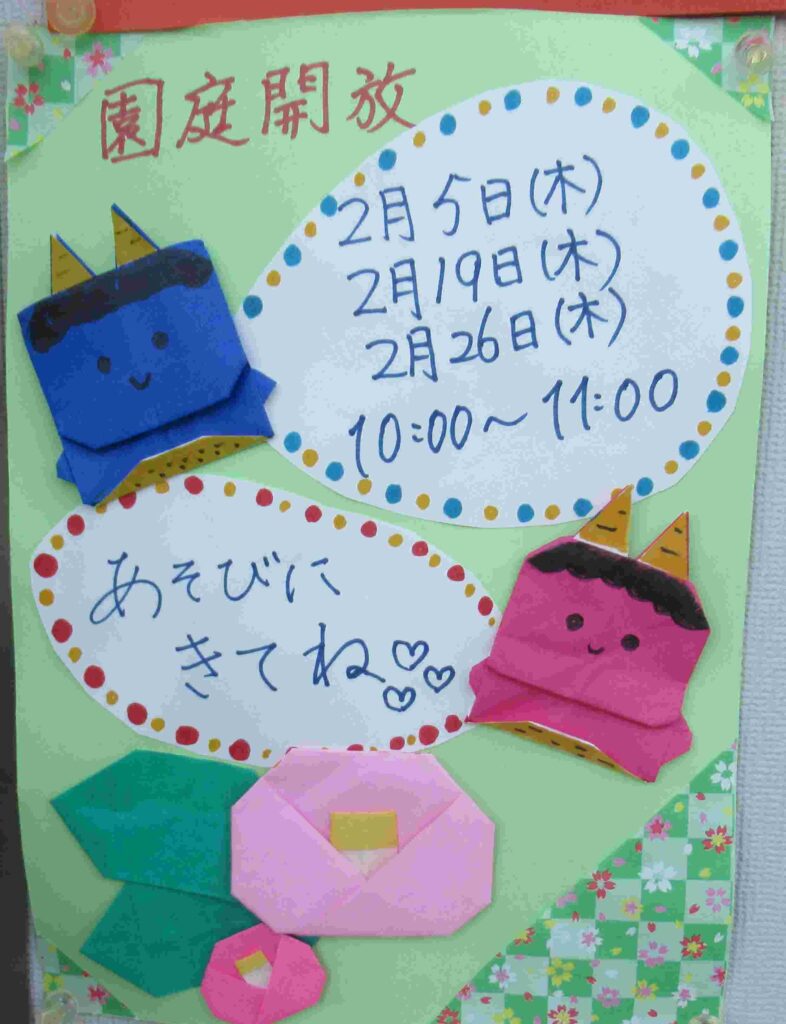 園庭開放
2月5日(木)
2月19日(木)
2月26日(木)
10:00～11:00
あそびに
きてね♡♡♡